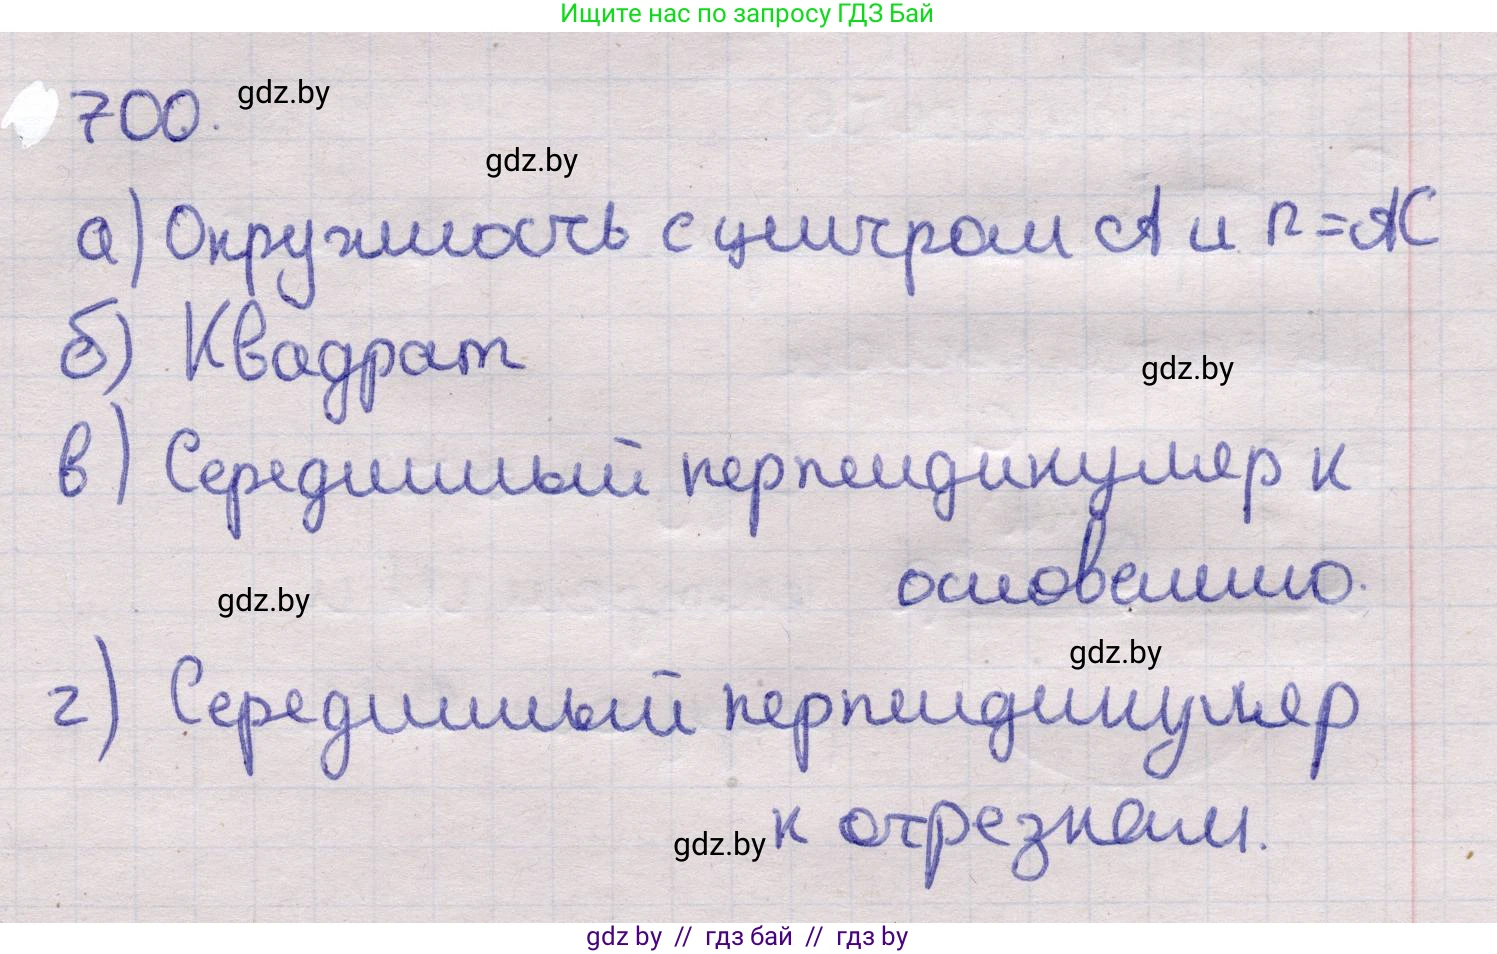 Ищите нас по запросу ГДЗ Бай
700. gdz.by
gdz.by
а) Окружность с центром А и r = АС
б) Квадрат
gdz.by
в) Серединный перпендикуляр к
основанию.
gdz.by
gdz.by
г) Серединный перпендикуляр
к отрезкам.
gdz.by
gdz by // гдз бай // гдз by